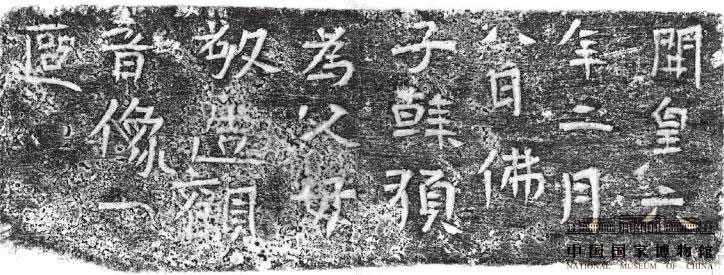 開皇
年二月
八日佛
子韓須
為父母
敬造觀
音像一
區
中国国家博物馆
NATIONAL MUSEUM OF CHINA